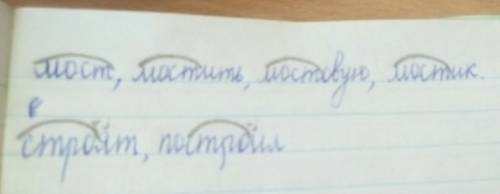 мост, мостить, мостовую, мостик.
в
строят, построил